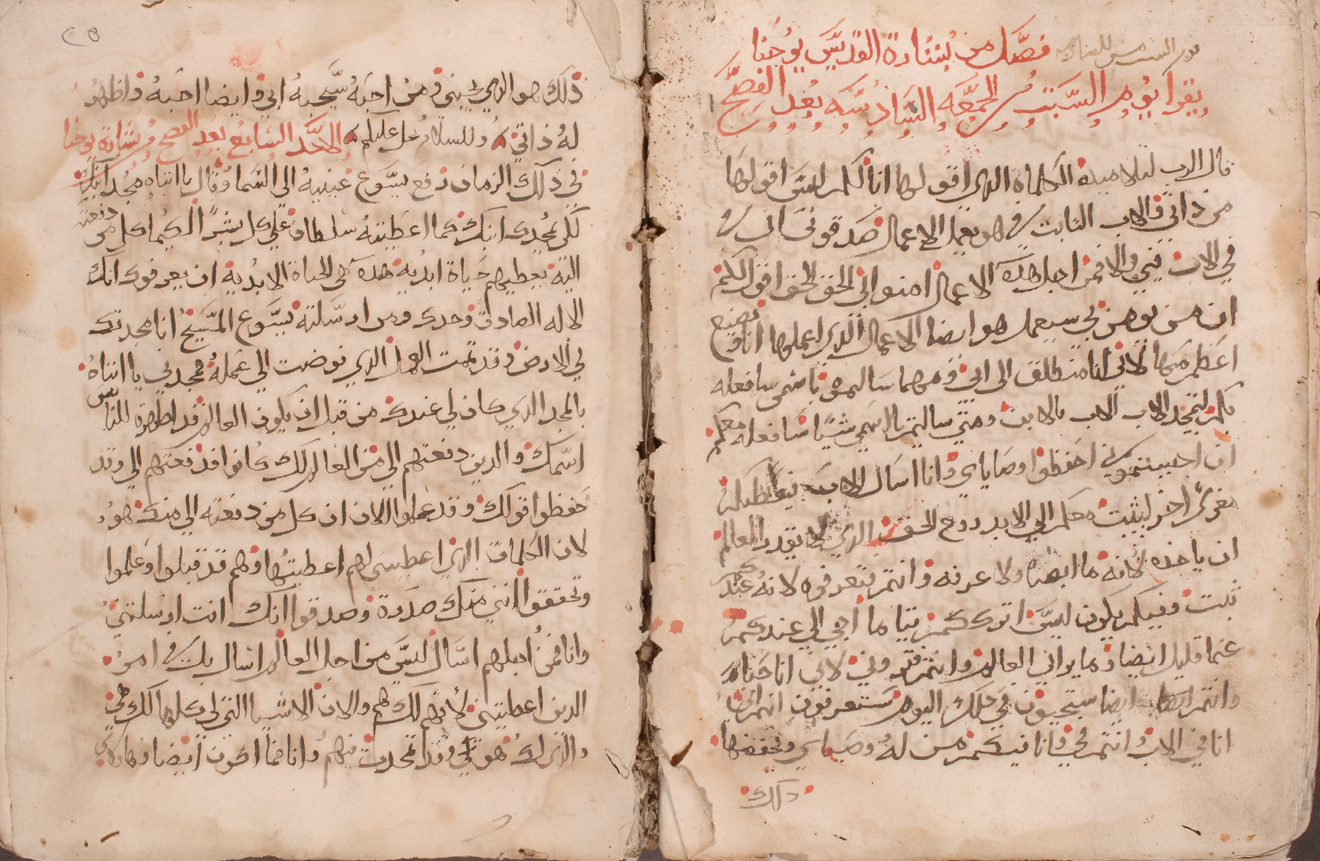 فصل من بشارة القديس يوحنا
يقرا يوم السبت من الجمعه السادسه بعد الفصح
قال الرب لتلاميده الكلمات الدي اقولها انا لكم ليس اقولها
من داتي والاب الثابت في هو يعمل الاعمال صدقوني اني في
في الاب في والا فمن اجل هده الاعمال امنوا بي الحق الحق اقول لكم
ان من يومن بي سيعمل هو ايضا الاعمال الدي اعملها انا ويصنع
اعظم منها لاني انا منطلق الى ابي ومهما سالتم باسمي سافعله
لكم ليتمجد الاب بالابن ومتى سالتم باسمي شيا سافعله
ان احببتموني احفظوا وصاياي وانا اسال الاب يعطيكم
معزي اخر ليثبت معكم الى الابد روح الحق الدي يقدر العالم
ان ياخده لانه ما ابصره ولا عرفه وانتم تعرفوه لانه عندكم
ثابت وفيكم يكون ليس اترككم يتاما اجي الى عندكم
عما قليل ايضا وما يراني العالم وانتم تروني لاني انا حي
وانتم ايضا ستحيون في دلك اليوم ستعرفون انتم اني
انا في الاب وانتم في وانا فيكم من له وصاياي ويحفظها
دلك
دلك هو الدي يحبني ومن احبه سيحبه ابي وايضا احبه واظهر
له داتي الاحد السابع بعد الفصح من بشارة يوحنا
في دلك الزمان رفع يسوع عينيه الى السما وقال يا ابتاه مجد ابنك
لكي يمجدك ابنك كما اعطيته سلطان على كل بشر لكيما كل من دفعته
اليه يعطيهم حياة ابديه هده هي الحياة الابدية ان يعرفوك انك
الاله الصادق وحدك ومن ارسلته يسوع المسيح انا مجدتك
في الارض وقد تممت العمل الدي فوضت الي عمله مجدني يا ابتاه
بالمجد الدي كان لي عندك من قبل ان يكون العالم قد اظهرت للناس
اسمك والدين دفعتهم الي من العالم لك كانوا ودفعتهم الي وقد
حفظوا اقوالك وقد علموا الان ان كل من دفعته الي منك هو
لان الكلمات الدي اعطيتني لهم اعطيتها وهم قد قبلوا وعلموا
وتحققوا انني منك صدرت وصدقوا انك انت ارسلتني
وانا فمن اجلهم اسال ليس من اجل العالم اسال بل في امر
الدين اعطيتني لانهم لك هم والان الاشيا التي لي كلها لك هي
والدي لك هو لي وقد تمجدت فيهم وانا فما اكون ايضا